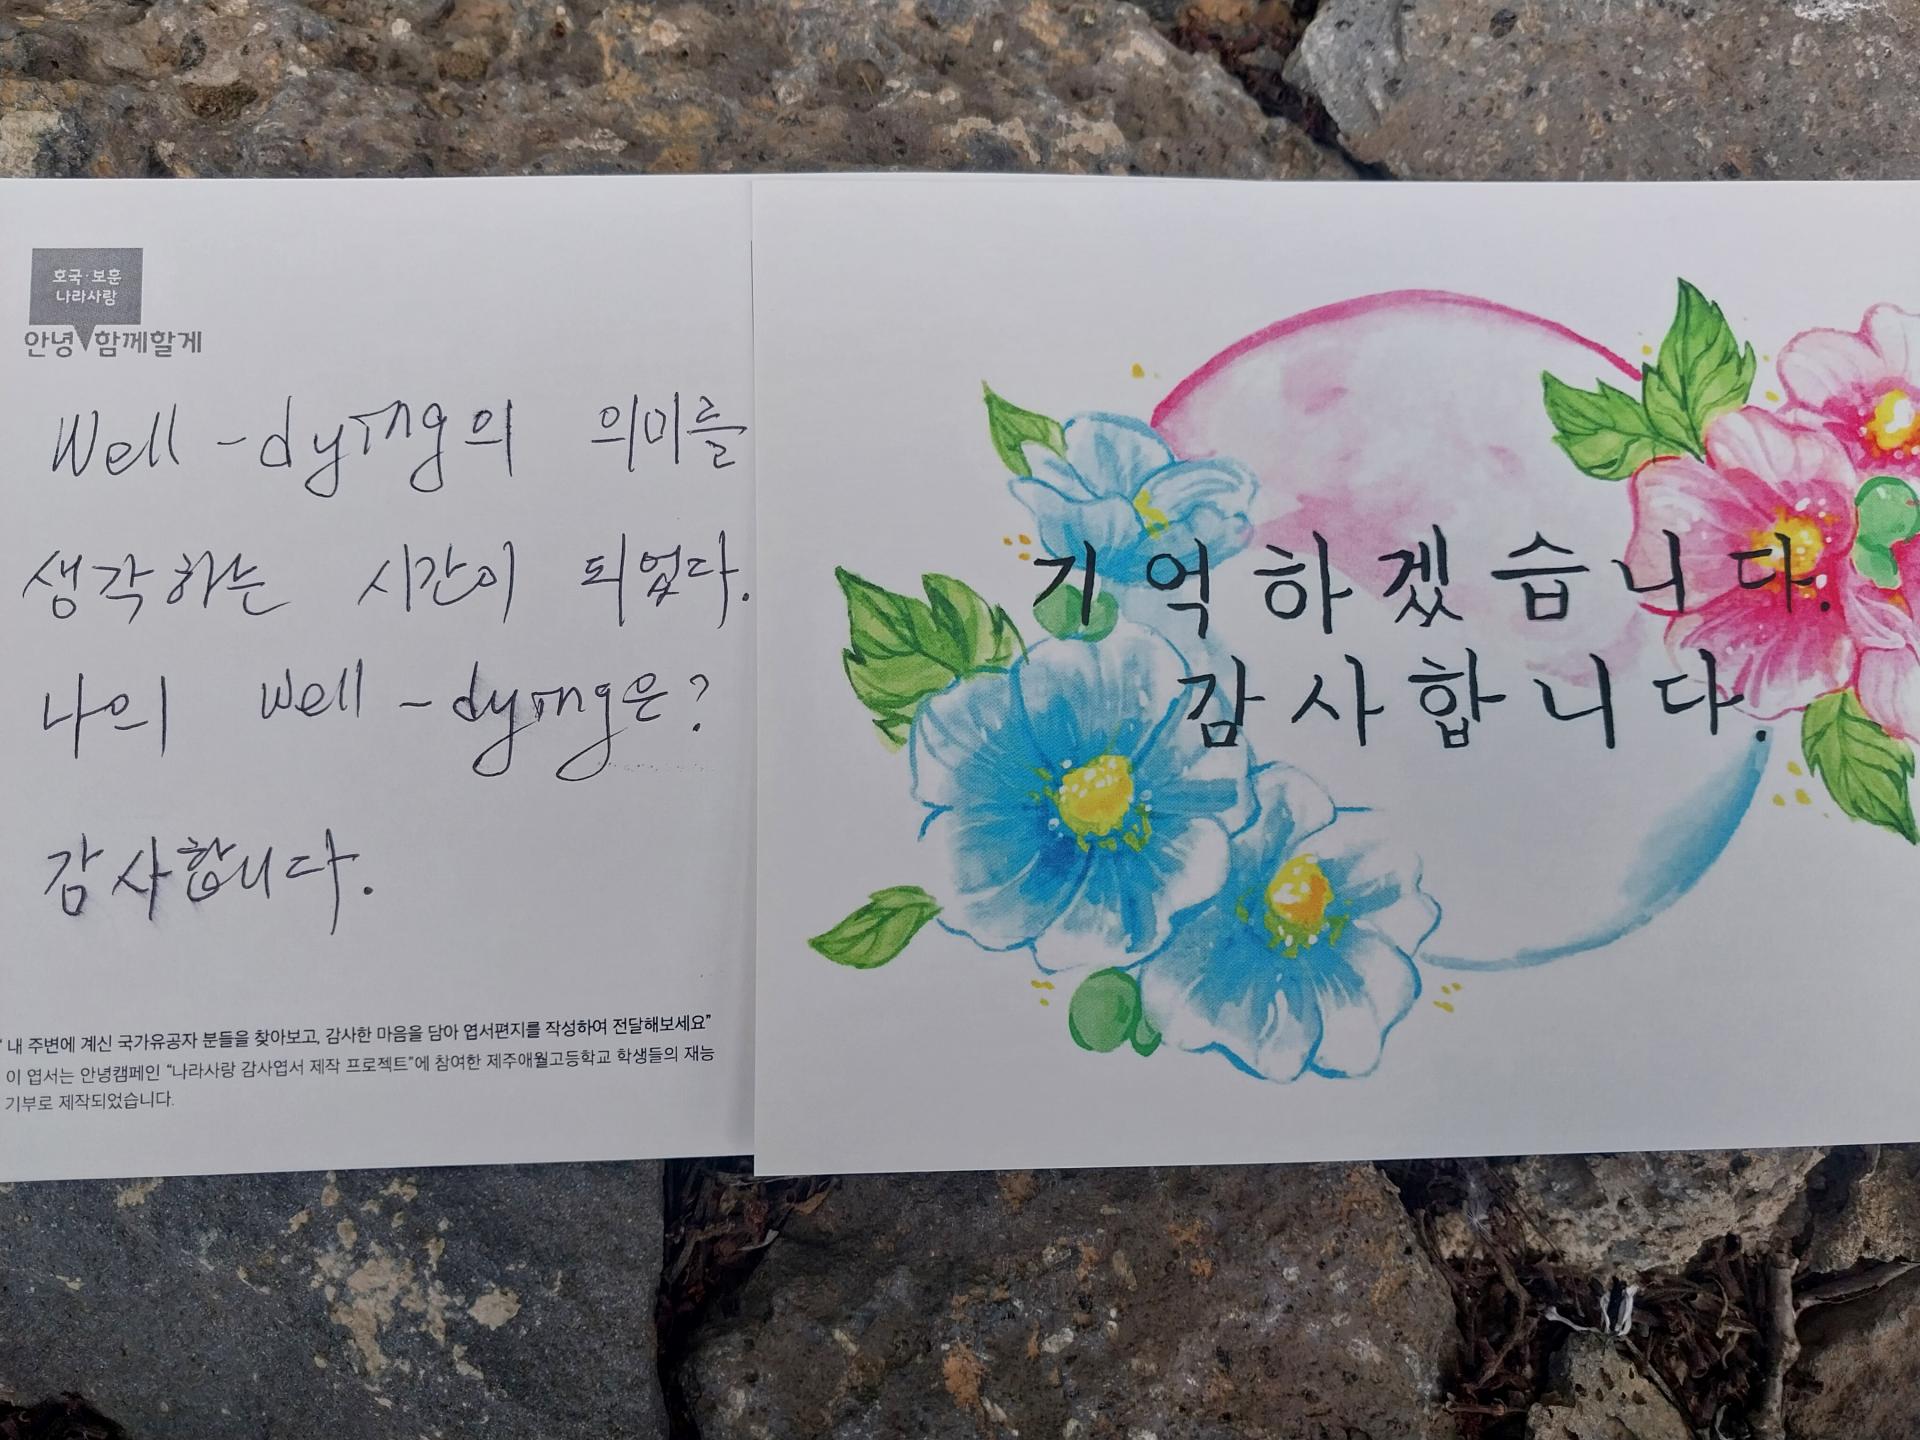 호국·보훈
나라사랑
안녕 함께할게
Well-dying의 의미를
생각하는 시간이 되었다.
나의 well-dying은?
감사합니다.
"내 주변에 계신 국가유공자 분들을 찾아보고, 감사한 마음을 담아 엽서편지를 작성하여 전달해보세요"
이 엽서는 안녕캠페인 "나라사랑 감사엽서 제작 프로젝트"에 참여한 제주애월고등학교 학생들의 재능
기부로 제작되었습니다.
기억하겠습니다.
감사합니다.